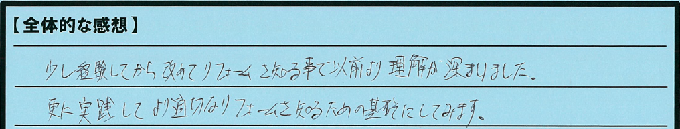 【全体的な感想】
少し経験してから改めてリフォームを知る事で以前より理解が深まりました。
更に実践してより適切なリフォームを知るための基礎にしてみます。